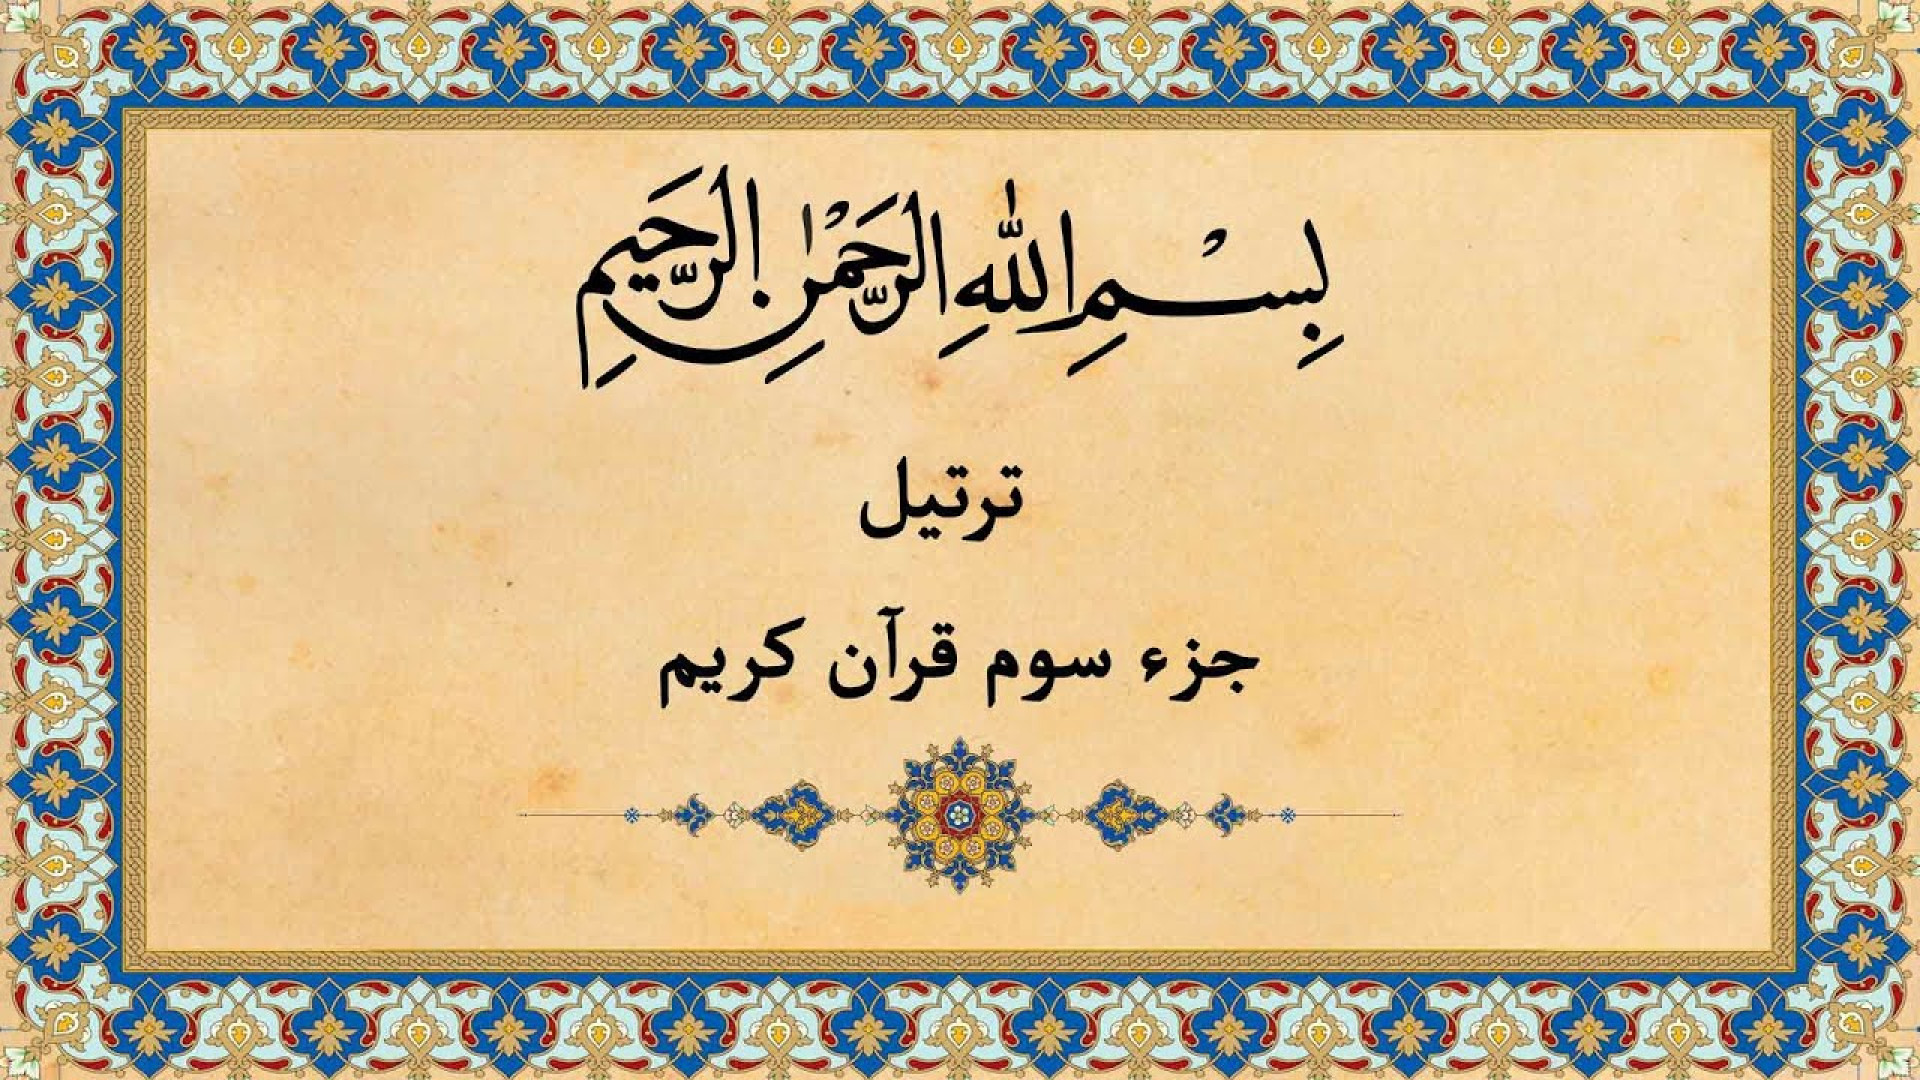 بِسْمِ اللهِ الرَّحْمٰنِ الرَّحِيمِ
ترتیل
جزء سوم قرآن کریم